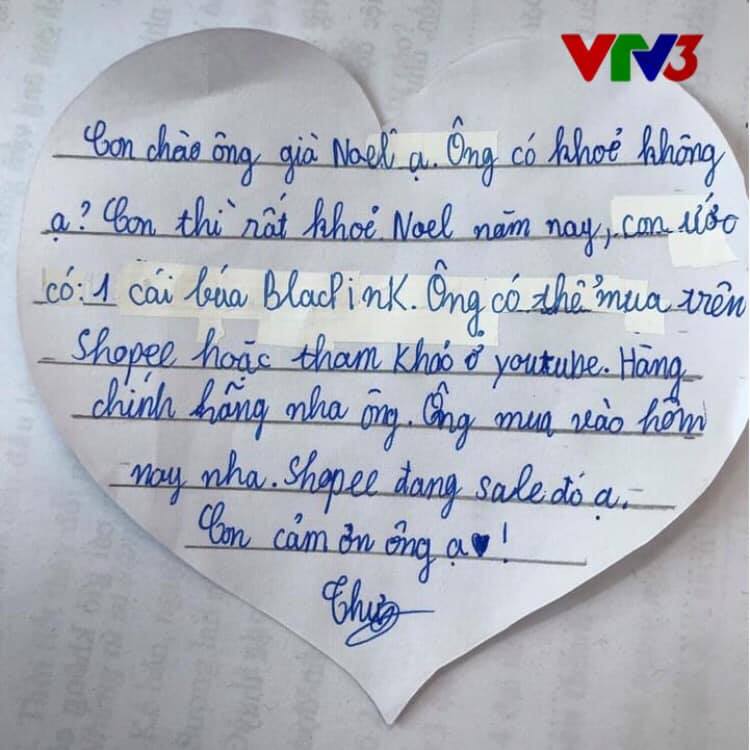 VTV3
Con chào ông già Noel ạ. Ông có khoẻ không
ạ? Con thì rất khoẻ. Noel năm nay, con ước
có: 1 cái búa BlacPinK. Ông có thể mua trên
Shopee hoặc tham khảo ở youtube. Hàng
chính hãng nha ông. Ông mua vào hôm
nay nha. Shopee đang sale đó ạ.
Con cảm ơn ông ạ♥!
Thư